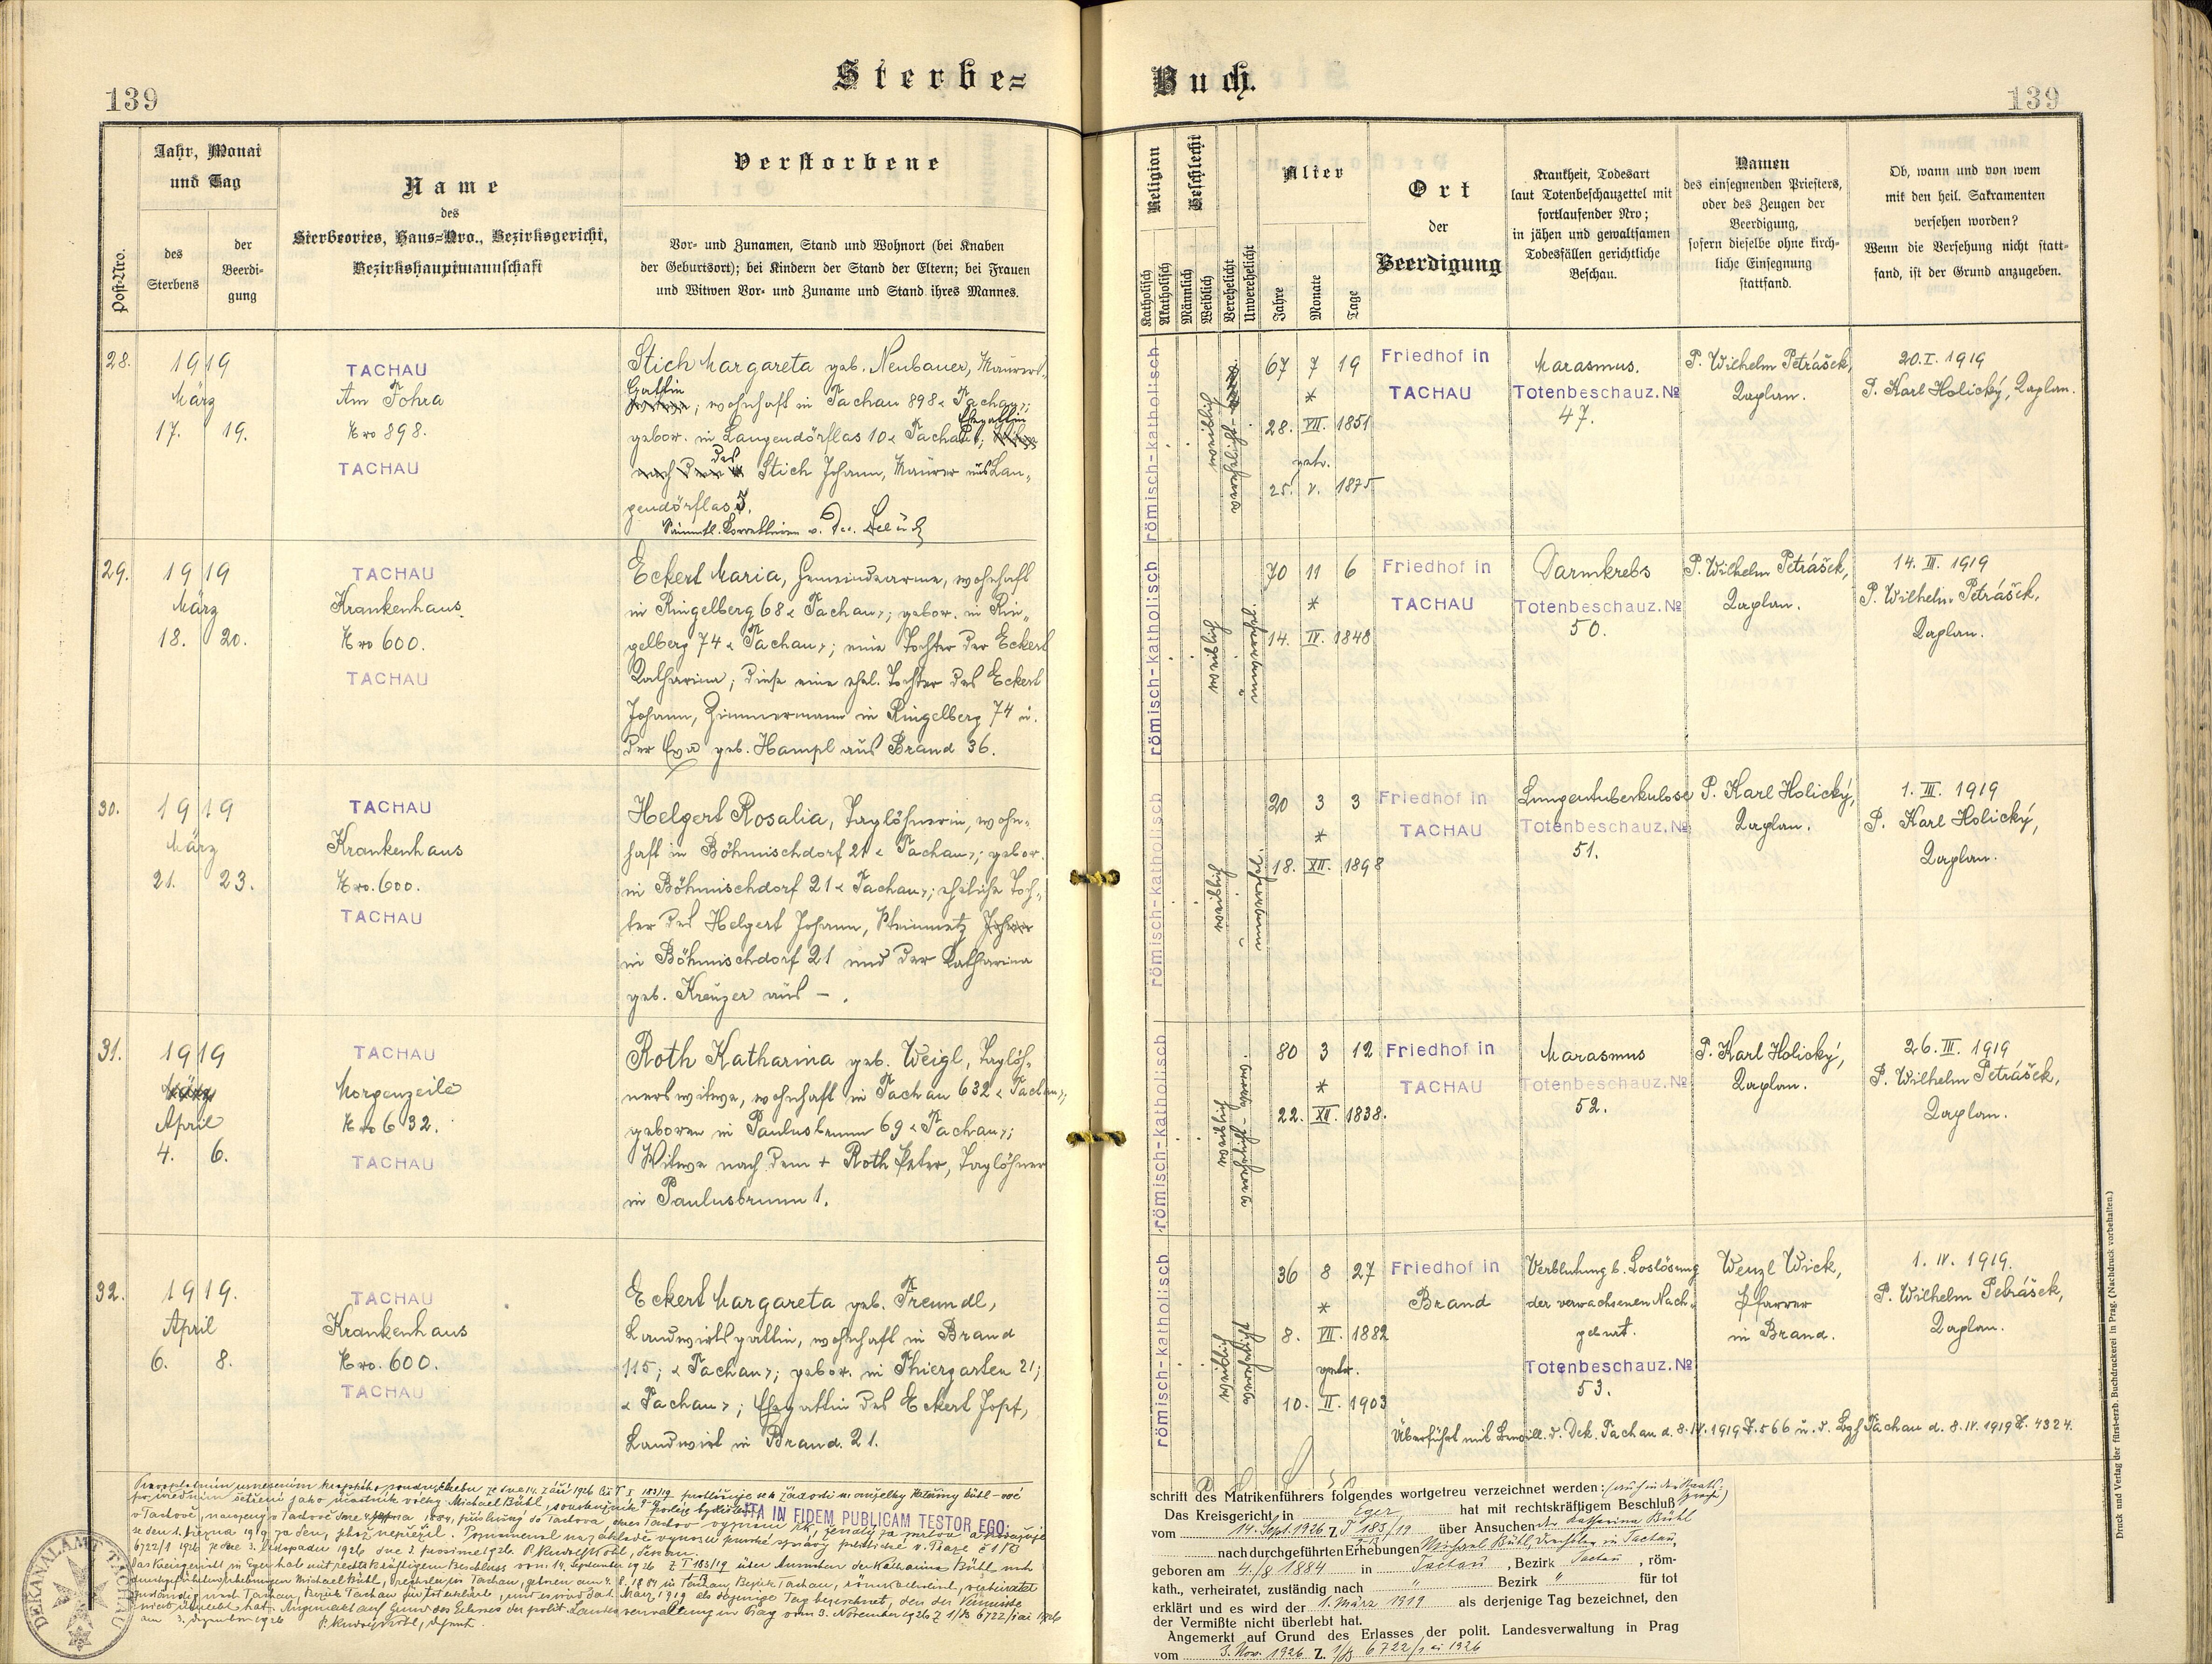 Sterbe=
Buch.
139
139
Post-Nro.
Jahr, Monat
und Tag
des
Sterbens
der
Beerdi-
gung
Name
des
Sterbeortes, Haus=Nro., Bezirksgericht,
Bezirkshauptmannschaft
Verstorbene
Vor- und Zunamen, Stand und Wohnort (bei Knaben
der Geburtsort); bei Kindern der Stand der Eltern; bei Frauen
und Witwen Vor- und Zuname und Stand ihres Mannes.
Religion
Katholisch
Akatholisch
Geschlecht
Männlich
Weiblich
Verehelicht
Unverehelicht
Alter
Jahre
Monate
Tage
Ort
der
Beerdigung
Krankheit, Todesart
laut Totenbeschauzettel mit
fortlaufender Nro;
in jähen und gewaltsamen
Todesfällen gerichtliche
Beschau.
Namen
des einsegnenden Priesters,
oder des Zeugen der
Beerdigung,
sofern dieselbe ohne kirch-
liche Einsegnung
stattfand.
Ob, wann und von wem
mit den heil. Sakramenten
versehen worden?
Wenn die Versehung nicht statt-
fand, ist der Grund anzugeben.
28.
1919
März
17. 19.
TACHAU
Am Fohra
Nro 898.
TACHAU
Stich Margareta geb. Neubauer, Maurers-
Gattin
; wohnhaft in Tachau 898 « Tachau»;
Ehegattin
gebor. in Langendörflas 10 « Tachau»;
des
Stich Johann, Maurer aus Lan-
gendörflas 5.
römisch-katholisch
weiblich
verehelicht
67 7 19
*
28. VII. 1851
getr.
25. V. 1875
Friedhof in
TACHAU
Marasmus.
Totenbeschauz. №
47.
P. Wilhelm Petrášek,
Kaplan.
20. I. 1919
P. Karl Holický, Kaplan.
29.
1919
März
18. 20.
TACHAU
Krankenhaus
Nro 600.
TACHAU
Eckert Maria, Gemeindearme, wohnhaft
in Ringelberg 68 « Tachau»; gebor. in Rin-
gelberg 74 « Tachau»; eine Tochter der Eckert
Katharina; diese eine ehel. Tochter des Eckert
Johann, Zimmermann in Ringelberg 74 u.
der Eva geb. Hampl aus Brand 36.
römisch-katholisch
weiblich
unverehel.
70 11 6
*
14. IV. 1848
Friedhof in
TACHAU
Darmkrebs
Totenbeschauz. №
50.
P. Wilhelm Petrášek,
Kaplan.
14. III. 1919
P. Wilhelm Petrášek,
Kaplan.
30.
1919
März
21. 23.
TACHAU
Krankenhaus
Nro. 600.
TACHAU
Helgert Rosalia, Taglöhnerin, wohn-
haft in Böhmischdorf 21 « Tachau»; gebor.
in Böhmischdorf 21 « Tachau»; eheliche Toch-
ter des Helgert Johann, Steinmetz
in Böhmischdorf 21 und der Katharina
geb. Kreuzer aus – .
römisch-katholisch
weiblich
unverehel.
20 3 3
*
18. XII. 1898
Friedhof in
TACHAU
Lungentuberkulose
Totenbeschauz. №
51.
P. Karl Holický,
Kaplan.
1. III. 1919
P. Karl Holický,
Kaplan.
31.
1919
April
4. 6.
TACHAU
Morgenzeile
Nro 632.
TACHAU
Roth Katharina geb. Weigl, Taglöh-
nerswitwe, wohnhaft in Tachau 632 « Tachau»;
geboren in Paulusbrunn 69 « Tachau»;
Witwe nach dem + Roth Peter, Taglöhner
in Paulusbrunn 1.
römisch-katholisch
weiblich
verehelicht
80 3 12
*
22. XII. 1838.
Friedhof in
TACHAU
Marasmus
Totenbeschauz. №
52.
P. Karl Holický,
Kaplan.
26. III. 1919
P. Wilhelm Petrášek,
Kaplan.
32.
1919.
April
6. 8.
TACHAU
Krankenhaus
Nro. 600.
TACHAU
Eckert Margareta geb. Freundl,
Landwirtsgattin, wohnhaft in Brand
115; « Tachau»; gebor. in Thiergarten 21;
« Tachau»; Ehegattin des Eckert Josef,
Landwirt in Brand. 21.
römisch-katholisch
weiblich
verehelicht
36 8 27
*
8. VII. 1882
getr.
10. II. 1903
Friedhof in
Brand
Verblutung b. Loslösung
der verwachsenen Nach-
geburt.
Totenbeschauz. №
53.
Wenzl Wick,
Pfarrer
in Brand.
1. IV. 1919.
P. Wilhelm Petrášek,
Kaplan.
Überführt mit Bewill. d. Dek. Tachau d. 8. IV. 1919 Z. 566 u. d. Bzh Tachau d. 8. IV. 1919 Z. 4324.
ITA IN FIDEM PUBLICAM TESTOR EGO:
Das Kreisgericht in Eger hat mit rechtskräftigem Beschluss vom 14. September 1926 Z T 183/19 über Ansuchen der Katharina Bühl, nach
am 3. Dezember 1926
DEKANALAMT TACHAU
schrift des Matrikenführers folgendes wortgetreu verzeichnet werden:
Das Kreisgericht in Eger hat mit rechtskräftigem Beschluß
vom 14. Sept. 1926 Z. T 183/19 über Ansuchen der Katharina Bühl
nach durchgeführten Erhebungen Michael Bühl, Drechsler in Tachau,
geboren am 4./8 1884 in Tachau, Bezirk Tachau, röm-
kath., verheiratet, zuständig nach " Bezirk " für tot
erklärt und es wird der 1. März 1919 als derjenige Tag bezeichnet, den
der Vermißte nicht überlebt hat.
Angemerkt auf Grund des Erlasses der polit. Landesverwaltung in Prag
vom 3. Nov. 1926 Z. 1/B 6722/1 ai 1926
Druck und Verlag der fürst-erzb. Buchdruckerei in Prag. (Nachdruck vorbehalten.)